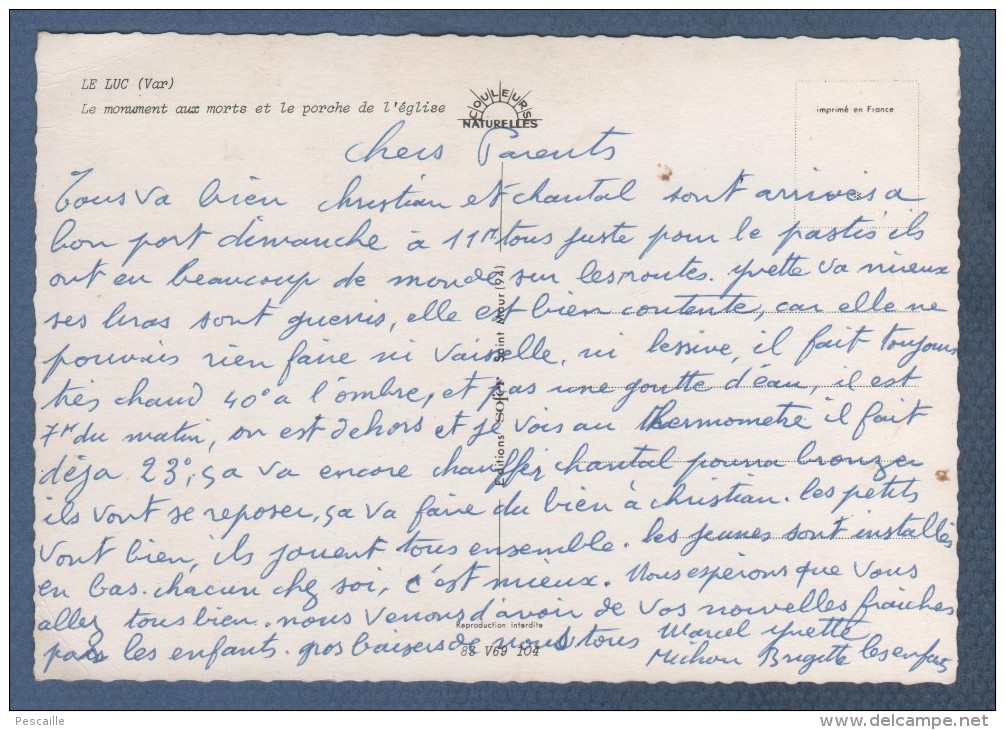 LE LUC (Var)
Le monument aux morts et le porche de l'église
COULEURS
NATURELLES
imprimé en France
Chers Parents
Tous va bien christian et chantal sont arrivés a
bon port dimanche à 11H tous juste pour le pastis ils
ont eu beaucoup de monde sur les routes. yvette va mieux
ses bras sont gueris, elle est bien contente, car elle ne
pouvais rien faire ni vaisselle, ni lessive, il fait toujours
très chaud 40° a l'ombre, et pas une goutte d'éau, il est
7H du matin, on est dehors et je vois au thermometre il fait
déja 23°, ça va encore chauffer, chantal pourra bronzer
ils vont se reposer, ça va faire du bien à christian. les petits
vont bien, ils jouent tous ensemble. les jeunes sont installés
en bas. chacun chez soi, c'est mieux. Nous espérons que vous
allez tous bien. nous venons d'avoir de vos nouvelles fraiches
par les enfants. gros baisers de nous tous Marcel yvette
Michou Brigitte les enfants
Editions SOFER Saint Maur (94)
Reproduction interdite
83 V69 104
Pescaille
http://www.delcampe.net